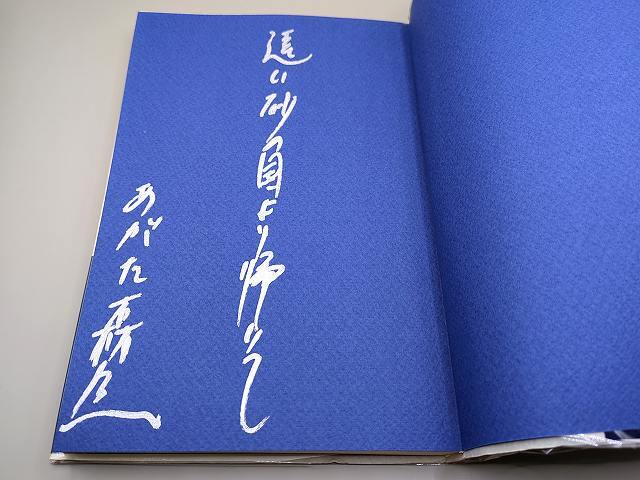 遠い砂の国より帰りて
あがた森魚